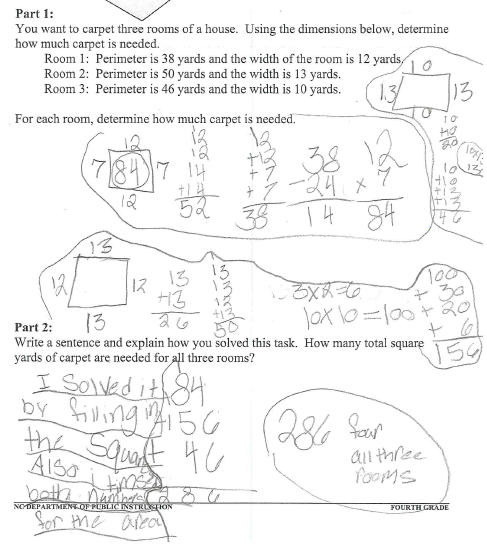 Part 1:
You want to carpet three rooms of a house. Using the dimensions below, determine
how much carpet is needed.
Room 1: Perimeter is 38 yards and the width of the room is 12 yards.
Room 2: Perimeter is 50 yards and the width is 13 yards.
Room 3: Perimeter is 46 yards and the width is 10 yards.
10
13 13
10
10
+10
20
10
+10
+13
+13
46
For each room, determine how much carpet is needed.
12
7 84 7
12
12
12
14
+14
52
12
+12
+7
+7
38
38
-24
14
12
x 7
84
13
12 12
13
13
+13
26
13
13
12
+12
50
3x2=6
10x10=100
100
+ 30
+ 20
+ 6
156
Part 2:
Write a sentence and explain how you solved this task. How many total square
yards of carpet are needed for all three rooms?
I Solved it
by filling in
the Squart
Also i times
both numbers
for the area
84
156
46
286
286 four
all three
rooms
NC DEPARTMENT OF PUBLIC INSTRUCTION
FOURTH GRADE